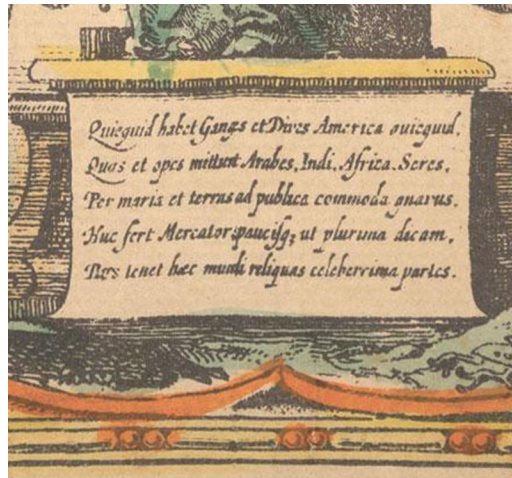 Quicquid habet Ganges et Dives America quicquid.
Quas et opes mittunt Arabes, Indi, Africa, Seres,
Per maria et terras ad publica commoda gnarus.
Huc fert Mercator, paucisq; ut plurima dicam,
tenet hæc mundi reliquas celeberrima partes.